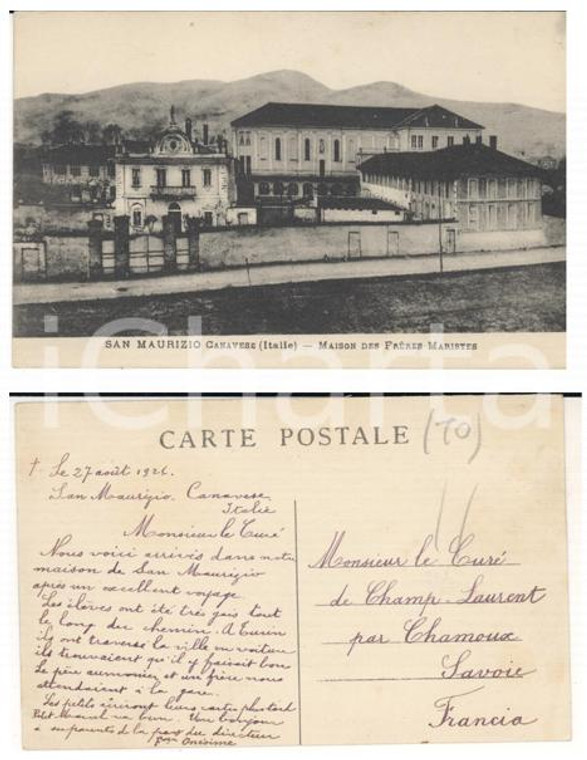 SAN MAURIZIO CANAVESE (Italie) — MAISON DES FRÈRES MARISTES
iCharta
CARTE POSTALE
(TO)
† Le 27 août 1926.
San Maurizio. Canavese
Italie
Monsieur le Curé
Nous voici arrivés dans notre
maison de San Maurizio
après un excellent voyage.
Les élèves ont été très gais tout
le long du chemin. A Turin
ils ont traversé la ville en voiture
ils trouvaient qu'il y faisait bon
Le père aumonier et un frère nous
attendaient à la gare.
Les petits écriront leurs cartes plus tard
Petit Marcel va bien. Un bonjour
a
parents de la part du directeur
Onésime
Monsieur le Curé
de Champ-Laurent
par Chamoux
Savoie
Francia